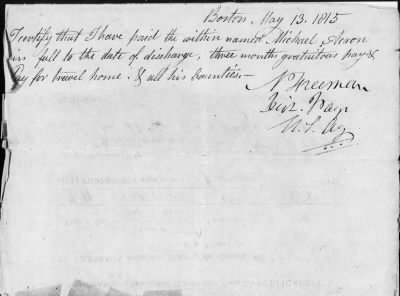 Boston May 13. 1815
I certify that I have paid the within named Michael Acron
in full to the date of discharge, three months gratuitous pay &
Pay for travel home. & all his bounties—
N Freeman
Dis. Paymr
U.S. Ay